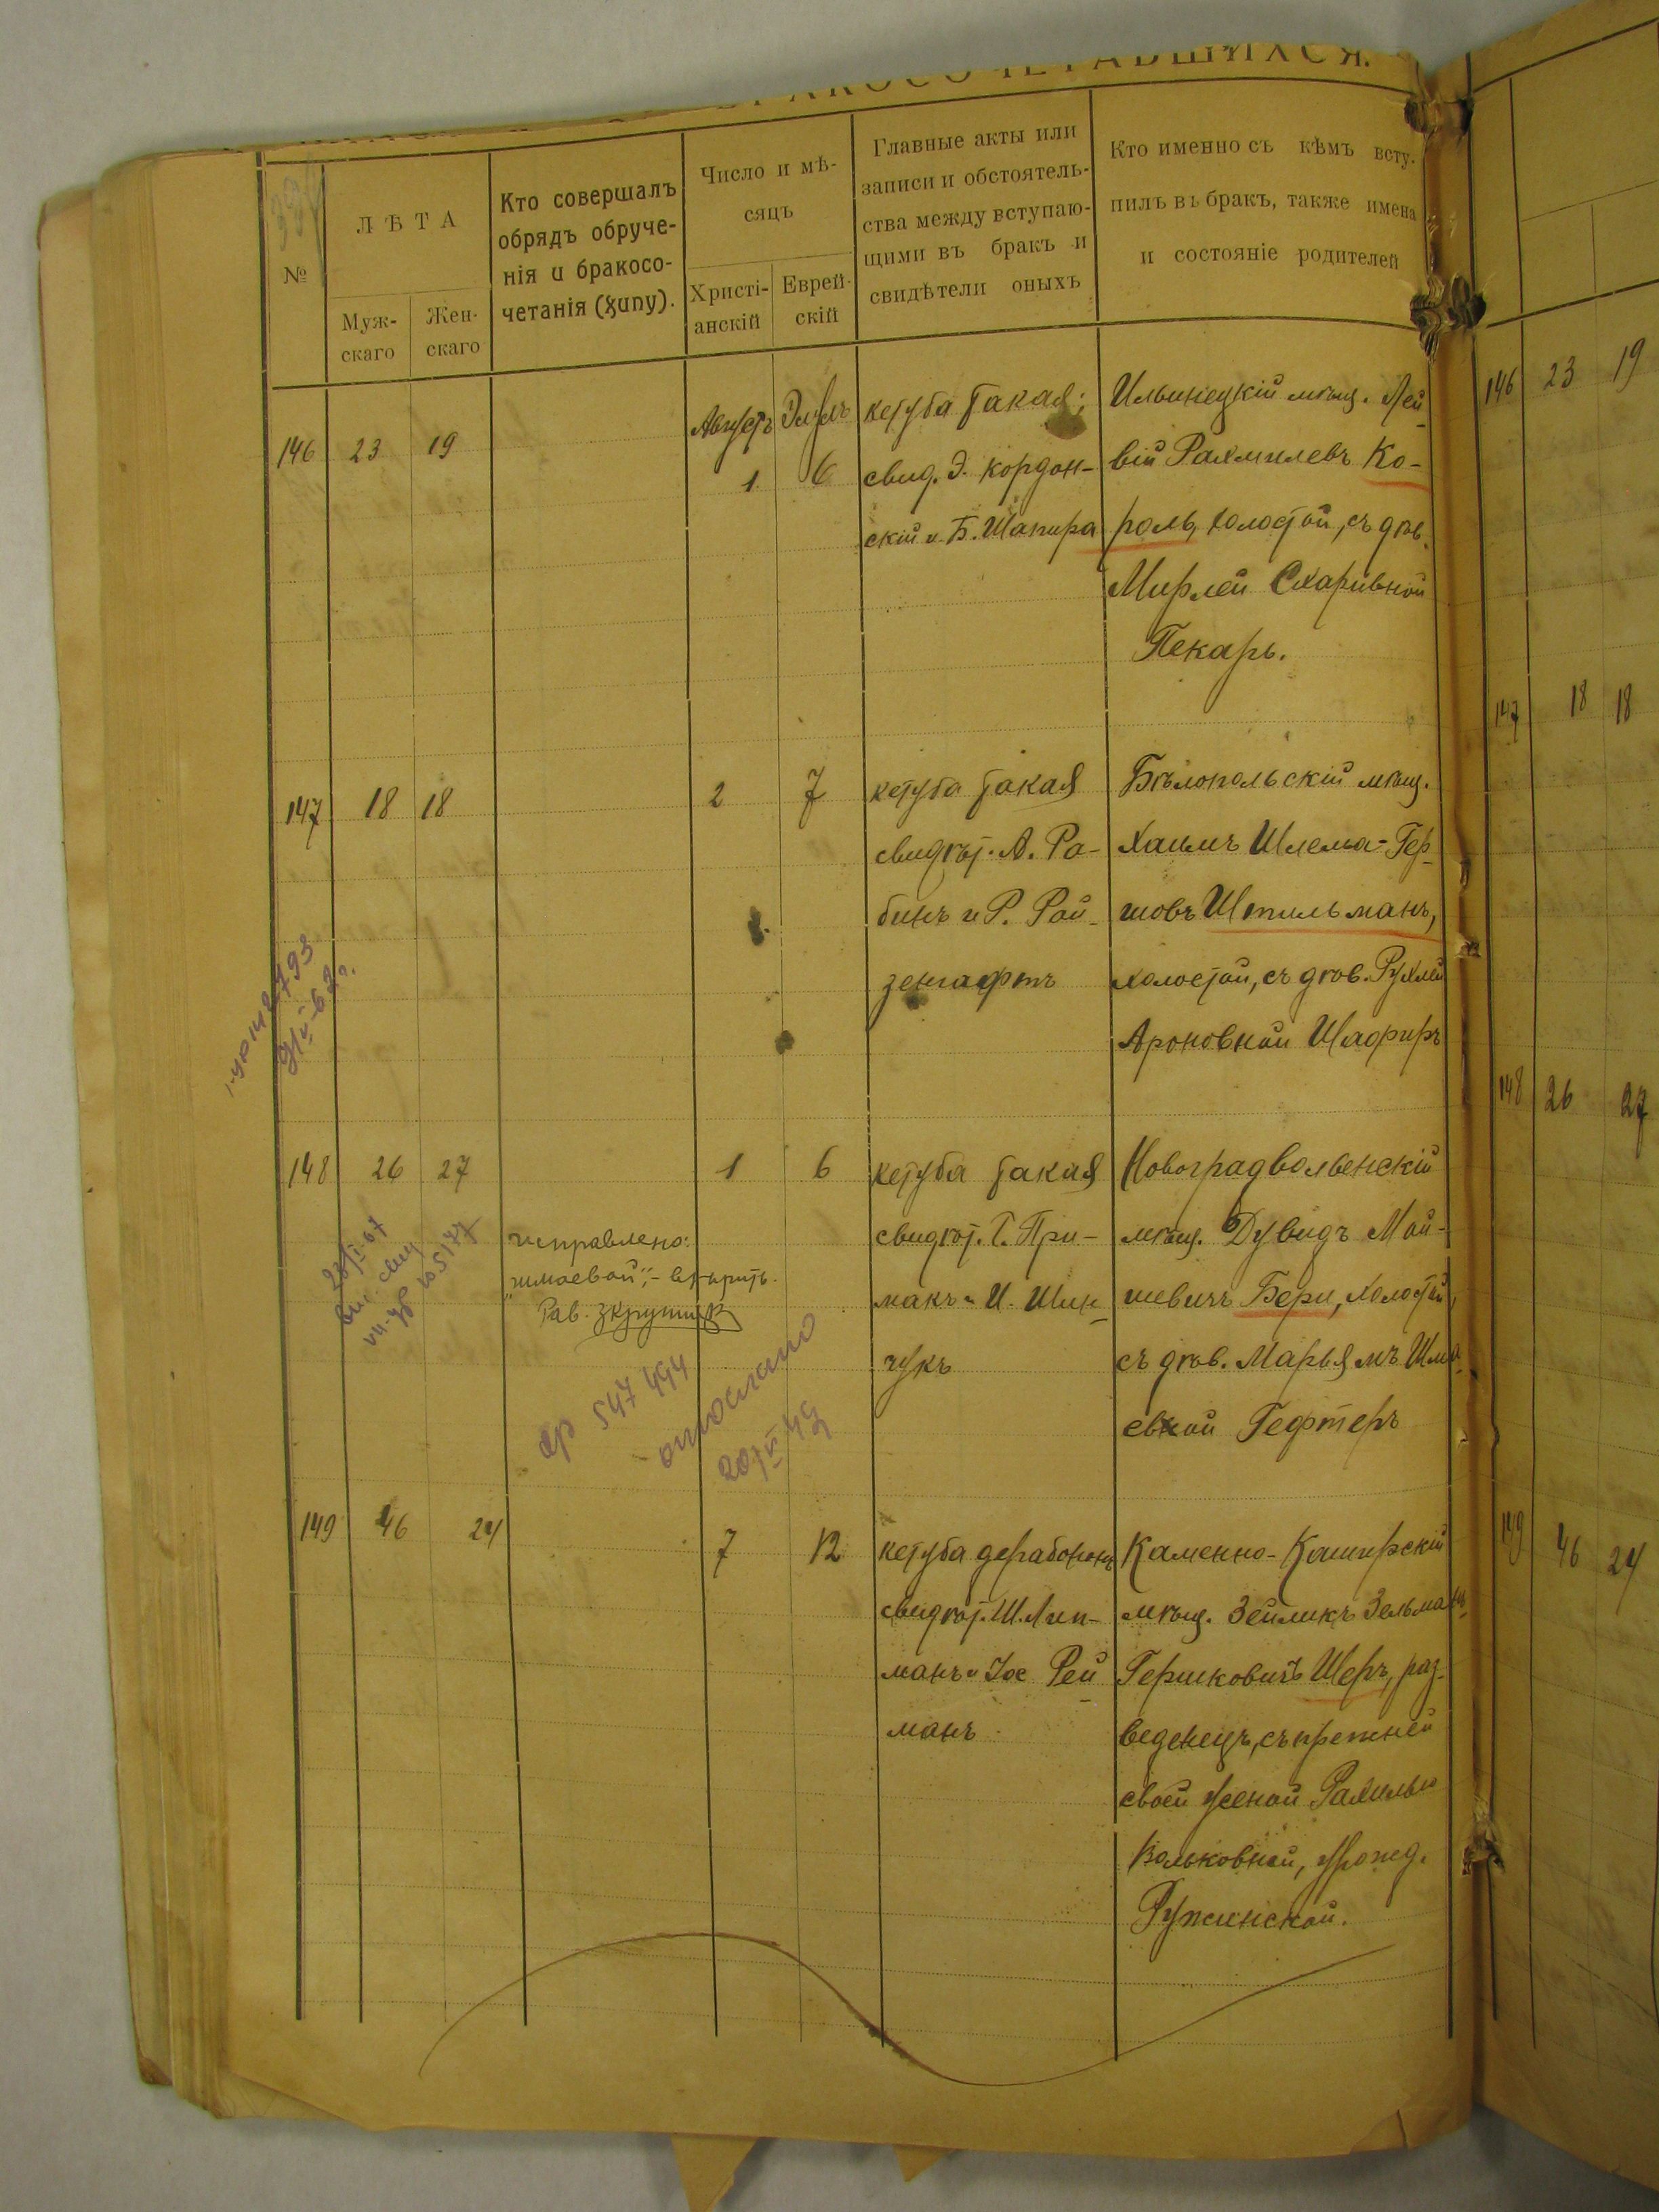 №
ЛѢТА
Муж-
скаго
Жен-
скаго
Кто совершалъ
обрядъ обруче-
нія и бракосо-
четанія (хупу).
Число и мѣ-
сяцъ
Христі-
анскій
Еврей-
скій
Главные акты или
записи и обстоятель-
ства между вступаю-
щими въ бракъ и
свидѣтели оныхъ
Кто именно съ кѣмъ всту-
пилъ въ бракъ, также имена
и состояніе родителей
146 23 19
Августъ Элулъ
1 6
кетуба такая;
свид. Э. Кордон-
скій и Б. Шапира
Ильинецкій мѣщ. Лей
вій Рахмилевъ Ко-
роль, холостой, съ дѣв.
Мирлей Схаривной
Пекарь.
147 18 18
2 7
кетуба такая
свидѣт. А. Ра-
бинъ и Р. Рой-
зенгафтъ
Бѣлопольскій мѣщ.
Хаимъ Шлема-Гер-
шовъ Штильманъ,
холостой, съ дѣв. Рухлей
Ароновной Шафиръ
148 26 27
исправлено:
Рав.
ср 547494
отослано
20/VI 49
1 6
кетуба такая
свидѣт. Т. При-
макъ и И. Шин-
чукъ
Новоградволынскій
мѣщ. Дувидъ Мой-
шевичъ Бери, холостой,
съ дѣв. Марьямъ Шма-
евной Гефтеръ
149 46 24
7 12
кетуба дерабононъ
свидѣт. Ш. Лип-
манъ и Іос Рей-
манъ
Каменно-Каширскій
мѣщ. Зейликъ Зельманъ
Гершковичъ Шеръ, раз-
веденецъ, съ прежней
своей женой Рахилью
Вольковной, урожд.
Ружинской.
146 23 19
147 18 18
148 26 27
149 46 24